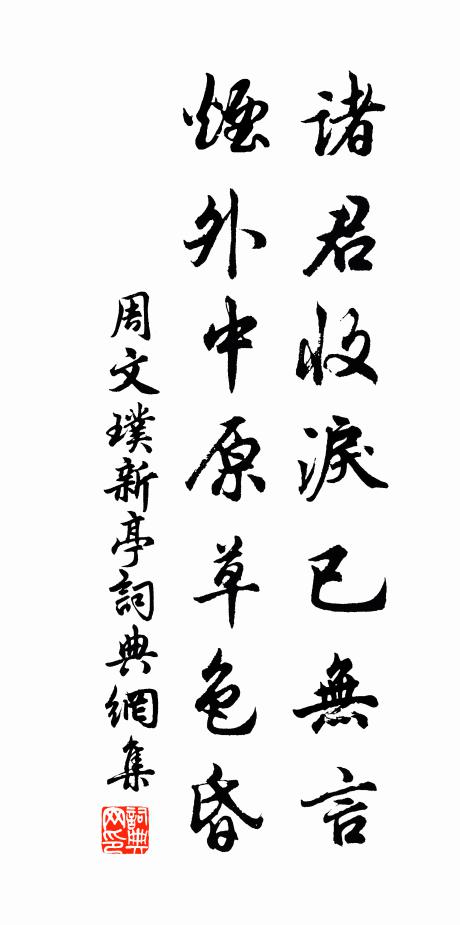 諸君收淚已無言
煙外中原草色昏
周文璞新亭詞典網集
詞典
网印